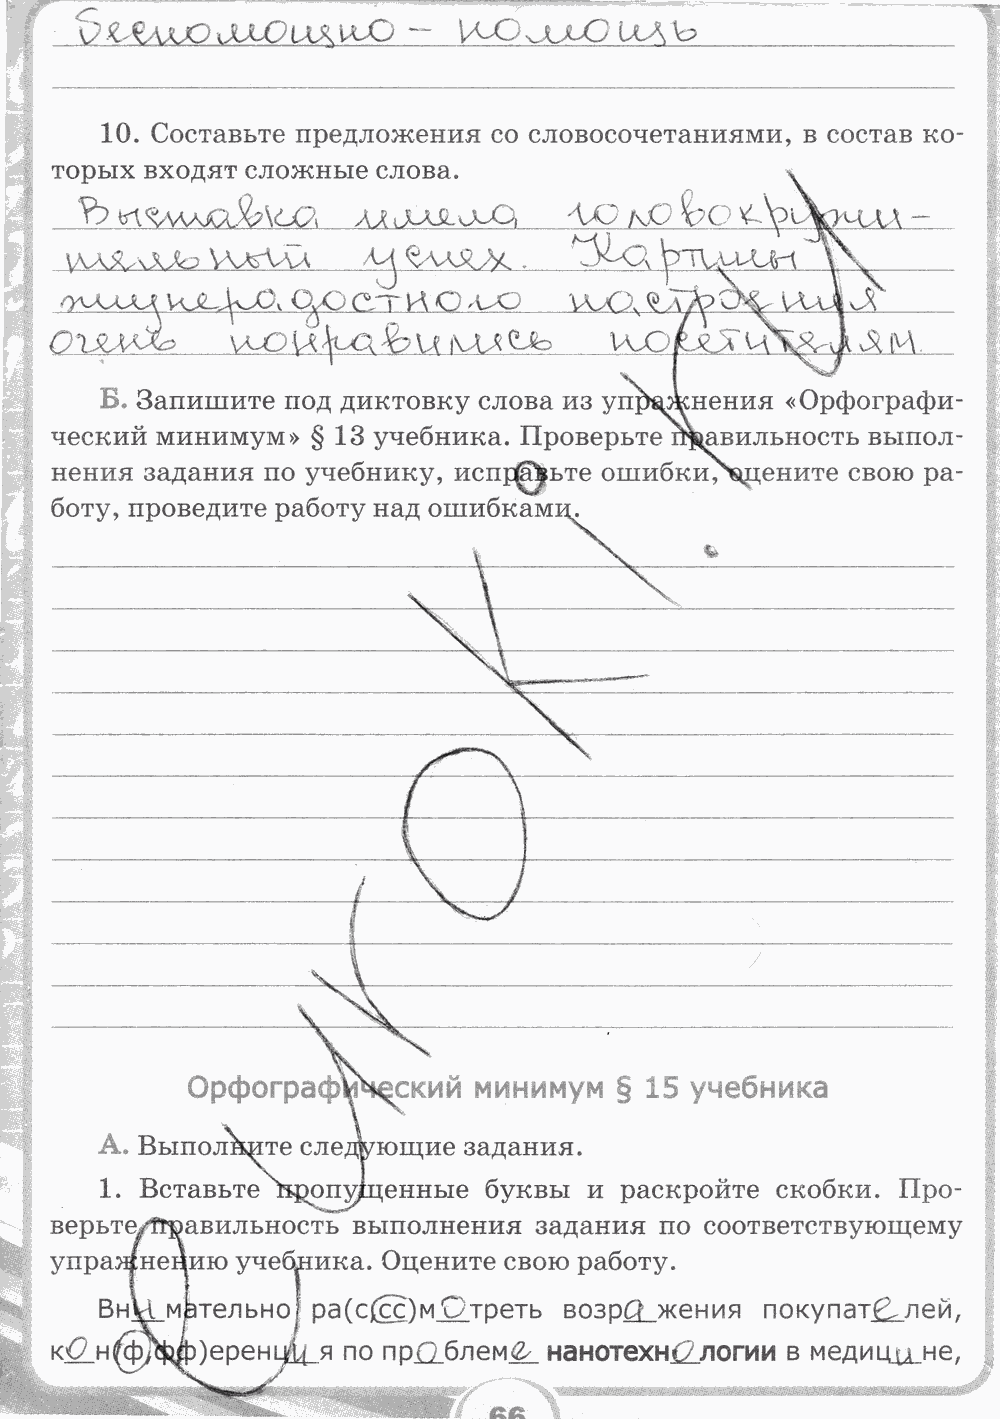 беспомощно – помощь
10. Составьте предложения со словосочетаниями, в состав ко-
торых входят сложные слова.
Выставка имела головокружи-
тельный успех. Картины
жизнерадостного настроения
очень понравились посетителям.
Б. Запишите под диктовку слова из упражнения «Орфографи-
ческий минимум» § 13 учебника. Проверьте правильность выпол-
нения задания по учебнику, исправьте ошибки, оцените свою ра-
боту, проведите работу над ошибками.
Орфографический минимум § 15 учебника
А. Выполните следующие задания.
1. Вставьте пропущенные буквы и раскройте скобки. Про-
верьте правильность выполнения задания по соответствующему
упражнению учебника. Оцените свою работу.
Внимательно ра(с,сс)мотреть возражения покупателей,
кон(ф,фф)еренция по проблеме нанотехнологии в медицине,
66